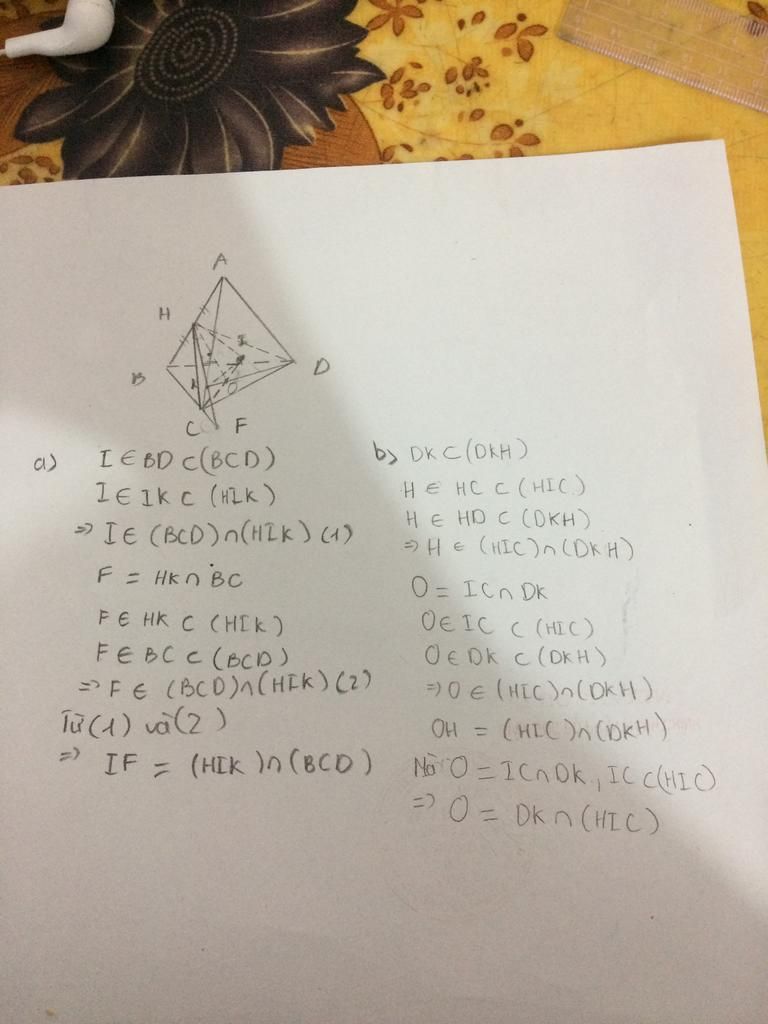 A
H
I
B
D
K
O
C F
a) I ∈ BD ⊂ (BCD)
I ∈ IK ⊂ (HIK)
=> I ∈ (BCD) ∩ (HIK) (1)
F = HK ∩ BC
F ∈ HK ⊂ (HIK)
F ∈ BC ⊂ (BCD)
=> F ∈ (BCD) ∩ (HIK) (2)
Từ (1) và (2)
=> IF = (HIK) ∩ (BCD)
b) DK ⊂ (DKH)
H ∈ HC ⊂ (HIC)
H ∈ HD ⊂ (DKH)
=> H ∈ (HIC) ∩ (DKH)
O = IC ∩ DK
O ∈ IC ⊂ (HIC)
O ∈ DK ⊂ (DKH)
=> O ∈ (HIC) ∩ (DKH)
OH = (HIC) ∩ (DKH)
Mà O = IC ∩ DK, IC ⊂ (HIC)
=> O = DK ∩ (HIC)